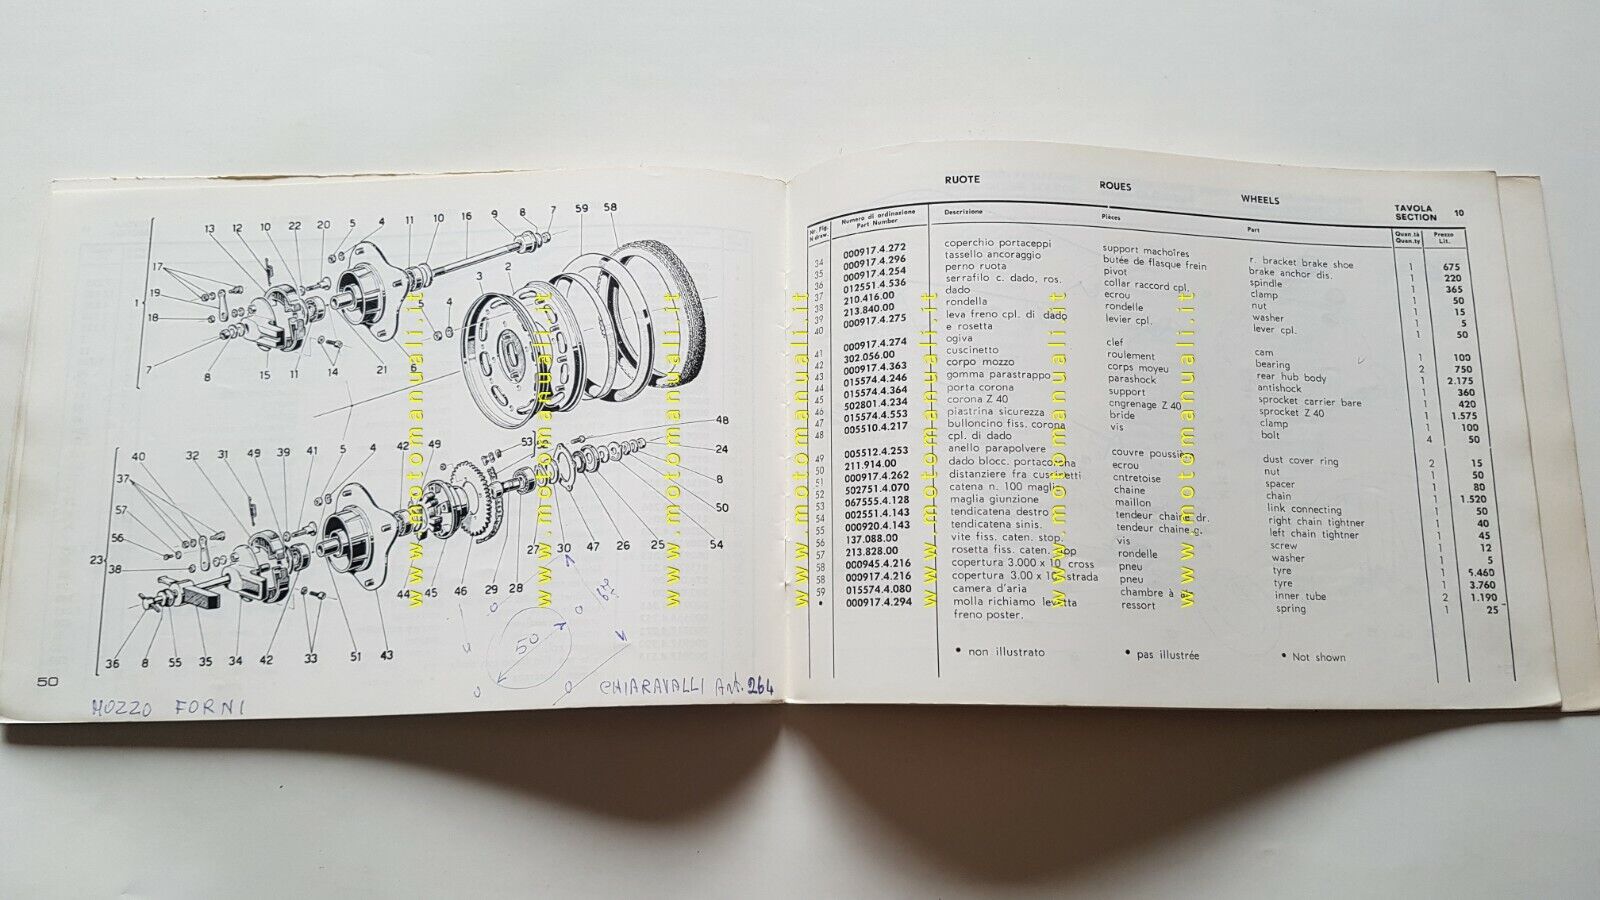 13 12 10 22 20 5 4 11 10 16 9 8 7 59 58
17
3
2
1
19
18
5
4
7
8
15 11 14 21 6
40 32 31 49 39 41 5 4 42 49
53
48
37
24
57
8
56
23
50
38
54
44 45 46 29 28 27 30 47 26 25
36 8 55 35 34 42 33 51 43
50
50
MOZZO FORNI
CHIARAVALLI Art. 264
RUOTE ROUES WHEELS TAVOLA SECTION 10
Nr. Fig. N draw. Numero di ordinazione Part Number Descrizione Pièces Part Quan.tà Quan.ty Prezzo Lit.
34 000917.4.272 coperchio portaceppi support machoîres r. bracket brake shoe 1 675
35 000917.4.296 tassello ancoraggio butée de flasque frein brake anchor dis. 1 220
36 000917.4.254 perno ruota pivot spindle 1 365
37 012551.4.536 serrafilo c. dado, ros. collar raccord cpl. clamp 1 50
38 210.416.00 dado ecrou nut 1 15
39 213.840.00 rondella rondelle washer 1 5
40 000917.4.275 leva freno cpl. di dado e rosetta levier cpl. lever cpl. 1 50
41 000917.4.274 ogiva clef cam 1 100
42 302.056.00 cuscinetto roulement bearing 2 750
43 000917.4.363 corpo mozzo corps moyeu rear hub body 1 2.175
44 015574.4.246 gomma parastrappo parashock antishock 1 360
45 015574.4.364 porta corona support sprocket carrier bare 1 420
46 502801.4.234 corona Z 40 engrenage Z 40 sprocket Z 40 1 1.575
47 015574.4.553 piastrina sicurezza bride clamp 1 100
48 005510.4.217 bulloncino fiss. corona cpl. di dado vis bolt 4 50
49 005512.4.253 anello parapolvere couvre poussière dust cover ring 2 15
50 211.914.00 dado blocc. portacorona ecrou nut 1 50
51 000917.4.262 distanziere fra cuscinetti entretoise spacer 1 80
52 502751.4.070 catena n. 100 maglie chaine chain 1 1.520
53 067555.4.128 maglia giunzione maillon link connecting 1 50
54 002551.4.143 tendicatena destro tendeur chaine dr. right chain tightner 1 40
55 000920.4.143 tendicatena sinis. tendeur chaine g. left chain tightner 1 45
56 137.088.00 vite fiss. caten. stop. vis screw 1 12
57 213.828.00 rosetta fiss. caten. stop rondelle washer 1 5
58 000945.4.216 copertura 3.000 x 10 cross pneu tyre 1 5.460
58 000917.4.216 copertura 3.00 x 10 strada pneu tyre 1 3.760
59 015574.4.080 camera d'aria chambre à air inner tube 2 1.190
• 000917.4.294 molla richiamo levetta freno poster. ressort spring 1 25
• non illustrato • pas illustrée • Not shown
www.motomanuali.it
www.motomanuali.it
www.motomanuali.it
www.motomanuali.it
www.motomanuali.it
www.motomanuali.it
www.motomanuali.it